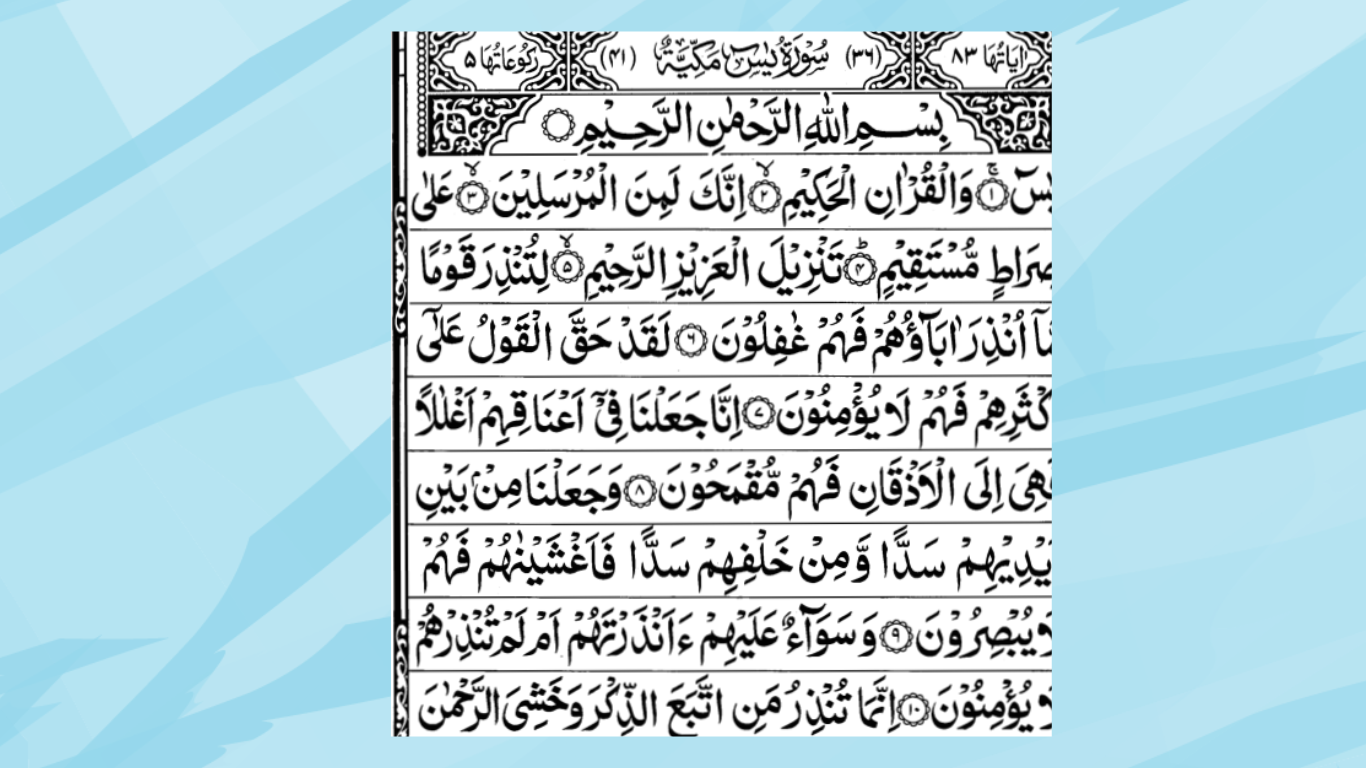 اٰيَاتُهَا ٨٣ (٣٦) سُوْرَةُ يٰسٓ مَكِّيَّةٌ (٤١) رُكُوْعَاتُهَا ٥
بِسْمِ اللّٰهِ الرَّحْمٰنِ الرَّحِيْمِ
يٰسٓ ۚ﴿١﴾ وَالْقُرْاٰنِ الْحَكِيْمِ ۙ﴿٢﴾ اِنَّكَ لَمِنَ الْمُرْسَلِيْنَ ۙ﴿٣﴾ عَلٰى
صِرَاطٍ مُّسْتَقِيْمٍ ؕ﴿٤﴾ تَنْزِيْلَ الْعَزِيْزِ الرَّحِيْمِ ۙ﴿٥﴾ لِتُنْذِرَ قَوْمًا
مَّاۤ اُنْذِرَ اٰبَآؤُهُمْ فَهُمْ غٰفِلُوْنَ ﴿٦﴾ لَقَدْ حَقَّ الْقَوْلُ عَلٰۤى
كْثَرِهِمْ فَهُمْ لَا يُؤْمِنُوْنَ ﴿٧﴾ اِنَّا جَعَلْنَا فِيْۤ اَعْنَاقِهِمْ اَغْلٰلًا
فَهِىَ اِلَى الْاَذْقَانِ فَهُمْ مُّقْمَحُوْنَ ﴿٨﴾ وَجَعَلْنَا مِنْۢ بَيْنِ
يْدِيْهِمْ سَدًّا وَّمِنْ خَلْفِهِمْ سَدًّا فَاَغْشَيْنٰهُمْ فَهُمْ
لَا يُبْصِرُوْنَ ﴿٩﴾ وَسَوَآءٌ عَلَيْهِمْ ءَاَنْذَرْتَهُمْ اَمْ لَمْ تُنْذِرْهُمْ
لَا يُؤْمِنُوْنَ ﴿١٠﴾ اِنَّمَا تُنْذِرُ مَنِ اتَّبَعَ الذِّكْرَ وَخَشِىَ الرَّحْمٰنَ